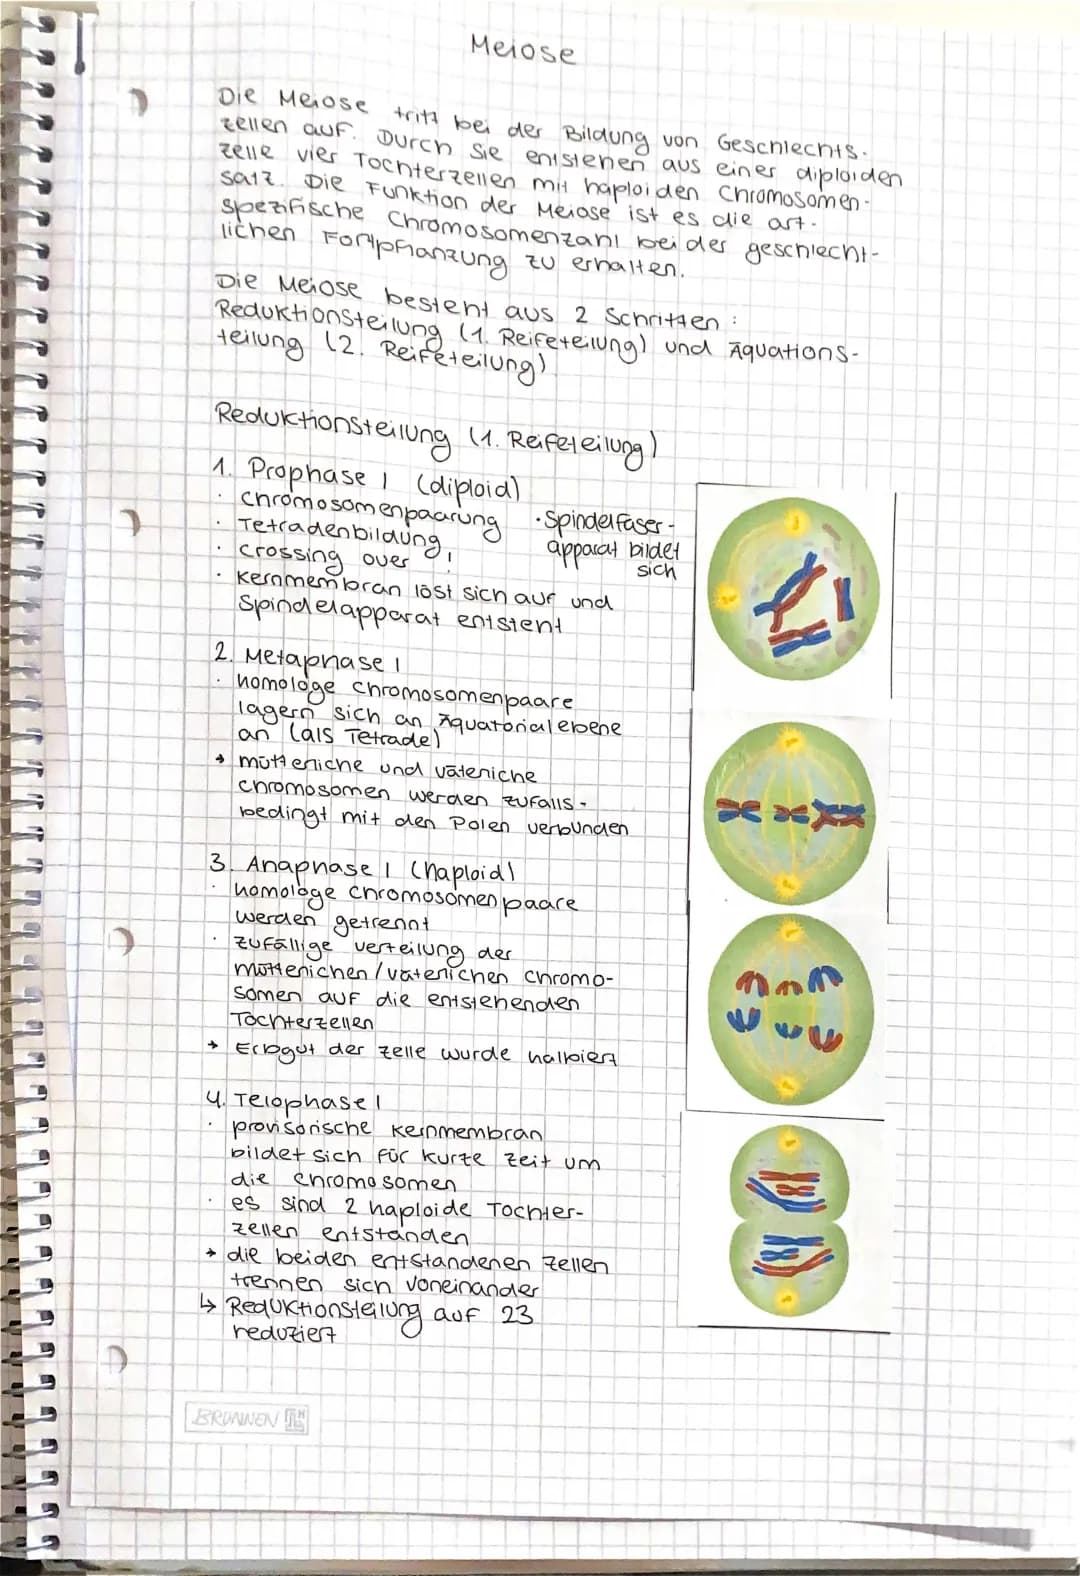 Meiose
Die Meiose tritt bei der Bildung von Geschlechts-
zellen auf. Durch sie entstehen aus einer diploiden
zelle vier Tochterzellen mit haploiden Chromosomen-
satz. Die Funktion der Meiose ist es die art-
spezifische Chromosomenzahl bei der geschlecht-
lichen Fortpflanzung zu erhalten.
Die Meiose besteht aus 2 Schritten:
Reduktionsteilung (1. Reifeteilung) und Äquations-
teilung (2. Reifeteilung)
Reduktionsteilung (1. Reifeteilung)
1. Prophase I (diploid)
· Chromosomenpaarung
· Tetradenbildung
· Crossing over !
· Kernmembran löst sich auf und
Spindelapparat entsteht
· Spindelfaser-
apparat bildet
sich
2. Metaphase I
· homologe Chromosomenpaare
lagern sich an Äquatorialebene
an (als Tetrade)
→ mütterliche und väterliche
Chromosomen werden zufalls-
bedingt mit den Polen verbunden
3. Anaphase I (haploid)
· homologe Chromosomenpaare
werden getrennt
· zufällige verteilung der
mütterlichen/väterlichen Chromo-
somen auf die entstehenden
Tochterzellen
→ Erbgut der zelle wurde halbiert
4. Telophase I
· provisorische Kernmembran
bildet sich für kurze zeit um
die Chromosomen
· es sind 2 haploide Tochter-
zellen entstanden
→ die beiden entstandenen zellen
trennen sich voneinander
↳ Reduktionsteilung auf 23
reduziert
BRUNNEN